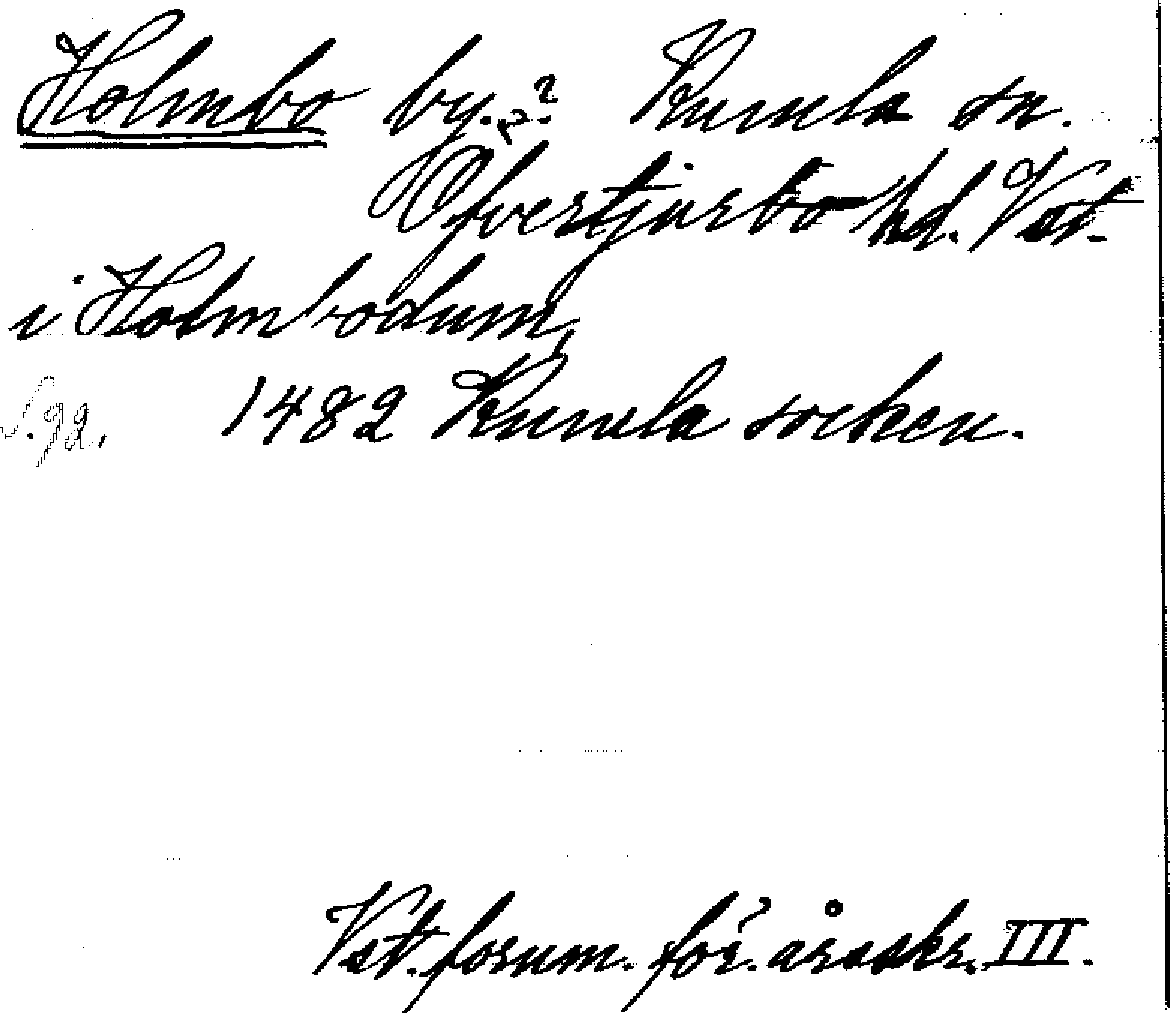 Holmbo by. Kumla sn.
Öfvertjurbo hd. Vst.
i Holmbodum,
S. 92. 1482 Kumla socken.
Vst. fornm. för. årsskr. III.